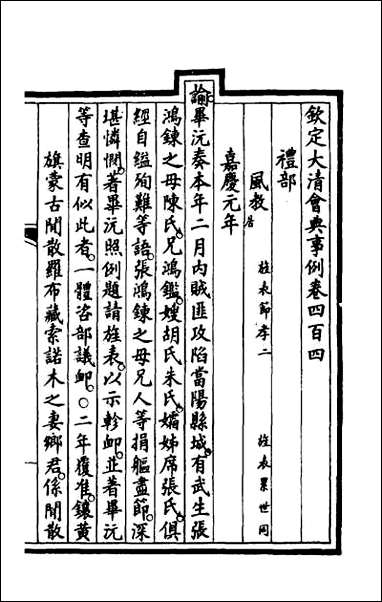 欽定大清會典事例卷四百四
禮部
風教
旌表節孝二
旌表累世同
居
嘉慶元年
諭畢沅奏本年二月內賊匪攻陷當陽縣城有武生張
鴻鍊之母陳氏兄鴻鑑嫂胡氏朱氏孀姊席張氏俱
經自縊殉難等語張鴻鍊之母兄人等捐軀盡節深
堪憐憫著畢沅照例題請旌表以示軫卹並著畢沅
等查明有似此者一體咨部議卹○二年覆准鑲黃
旗蒙古閒散羅布藏索諾木之妻鄉君係閒散